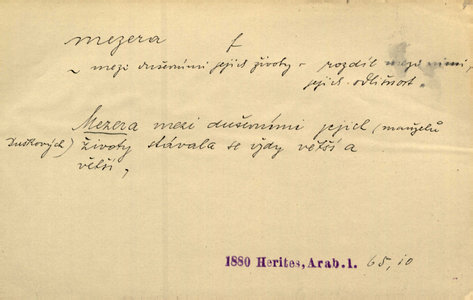 mezera f
~ mezi duševními jejich životy - rozdíl mezi nimi,
jejich odlišnost.
Mezera mezi duševními jejich (manželů
Duškových) životy stávala se vždy větší a
větší,
1880 Herites, Arab. 1. 65,10